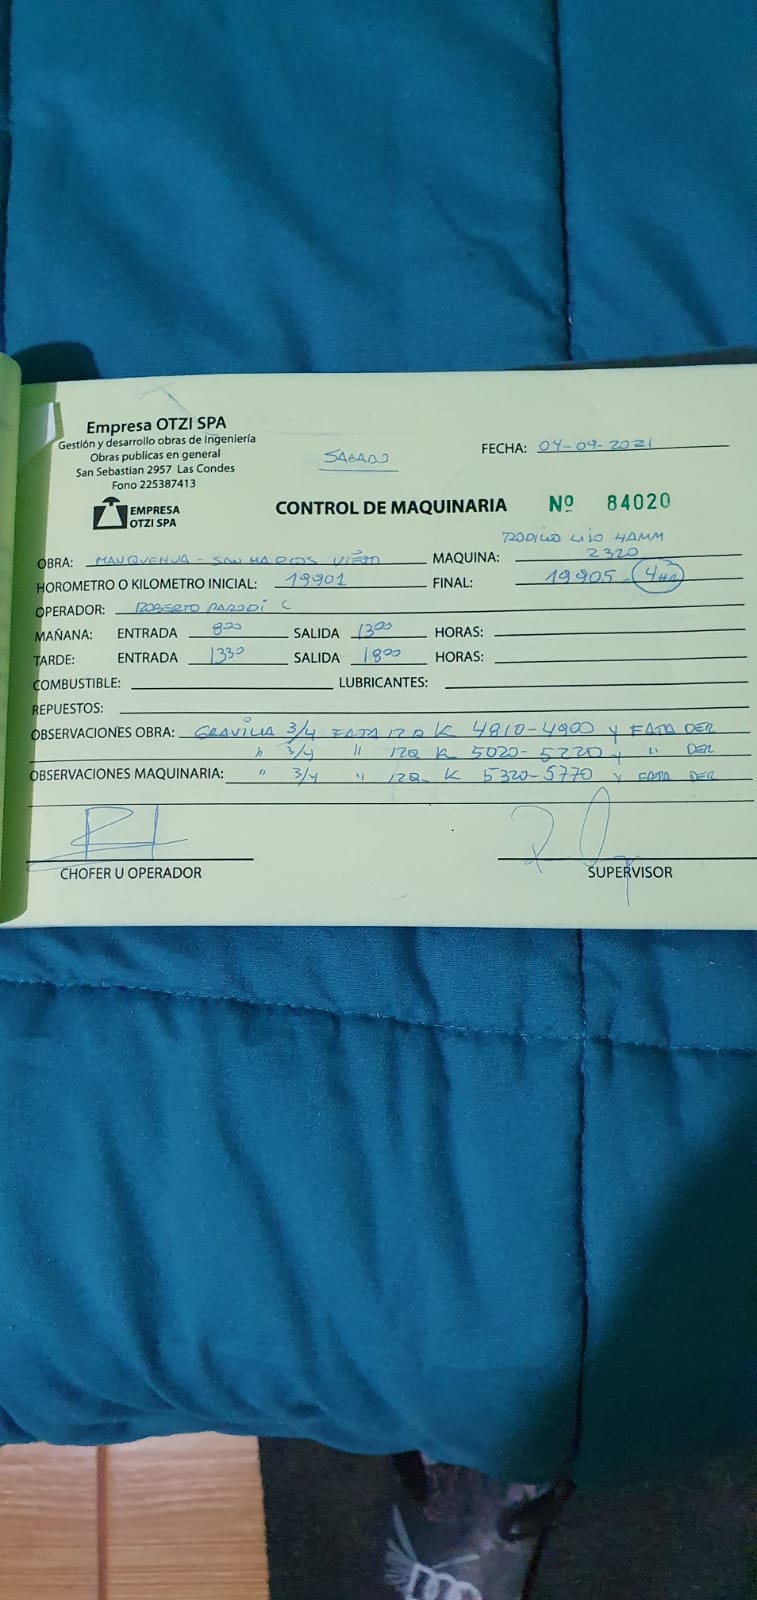 Empresa OTZI SPA
Gestión y desarrollo obras de Ingeniería
Obras publicas en general
San Sebastian 2957 Las Condes
Fono 225387413
EMPRESA
OTZI SPA
SABADO
FECHA: 04-09-2021
CONTROL DE MAQUINARIA Nº 84020
RODILLO LISO HAMM
OBRA: MAUQUEHUA - SAN MARCOS VIEJO MAQUINA: 2320
HOROMETRO O KILOMETRO INICIAL: 19901 FINAL: 19905 - 4
OPERADOR: ROBERTO PARODI C
MAÑANA: ENTRADA 800 SALIDA 1300 HORAS:
TARDE: ENTRADA 1330 SALIDA 1800 HORAS:
COMBUSTIBLE: LUBRICANTES:
REPUESTOS:
OBSERVACIONES OBRA: GRAVILLA 3/4 FAJA IZQ K 4810-4900 y FAJA DER
" 3/4 " IZQ K 5020-5220 y " DER
OBSERVACIONES MAQUINARIA: " 3/4 " IZQ. K 5320-5770 y FAJA DER
CHOFER U OPERADOR
SUPERVISOR